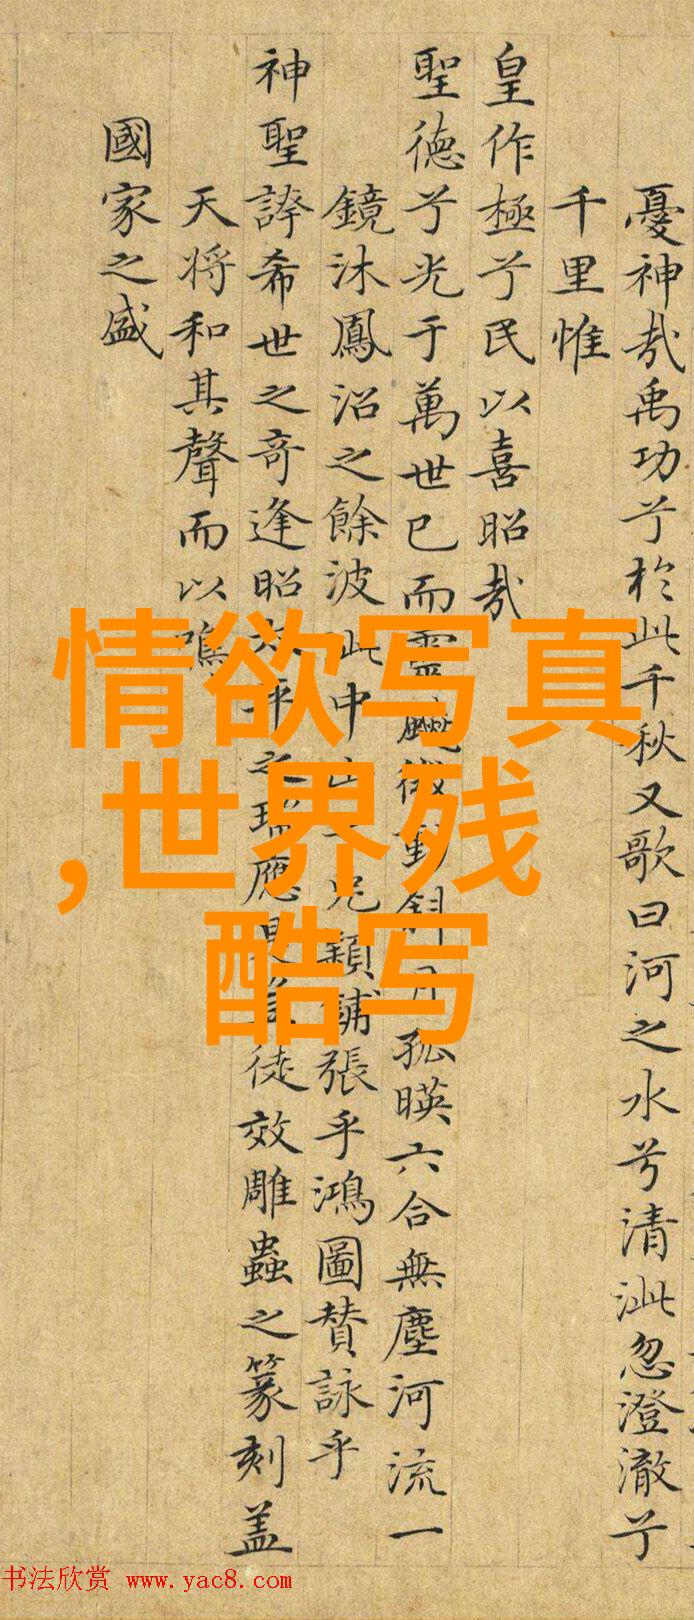 憂神哉禹功兮於此千秋又歌曰河之水兮清泚忽澄澈兮
千里惟
皇作極兮民以喜昭哉
聖德兮光于萬世已而靈鼇微動斜月孤暎六合無塵河流一
鏡沐鳳沼之餘波
中
兄穎誦張乎鴻圖贊詠乎
神聖誇希世之奇逢昭
之瑞應
徒效雕蟲之篆刻盖
天將和其聲而以鳴
國家之盛
情欲写真
,世界残
酷写
书法欣赏 www.yac8.com